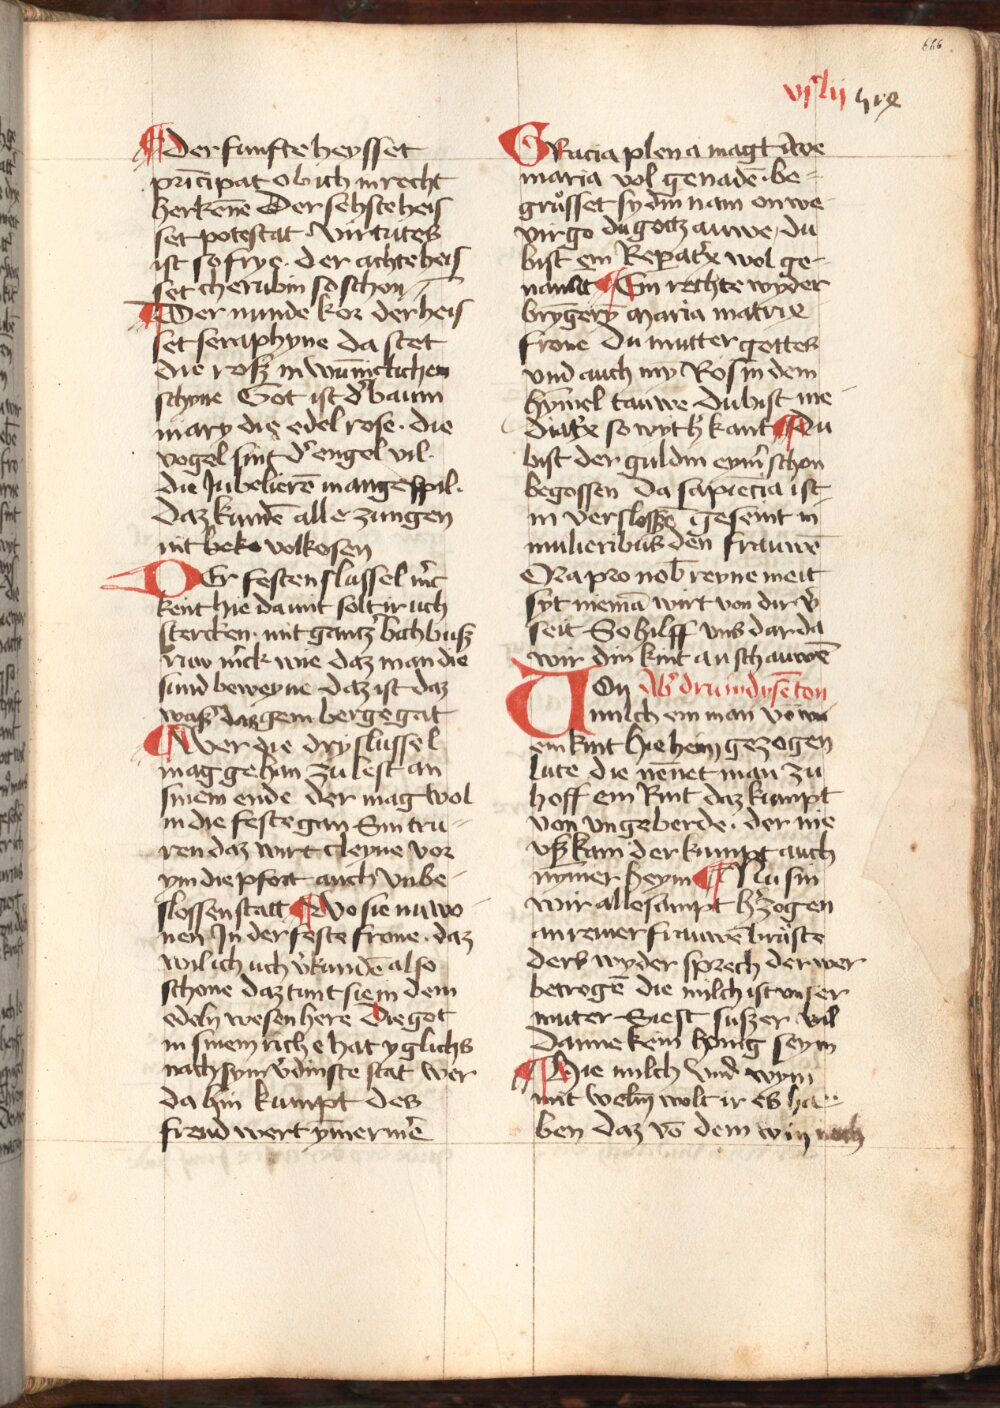 666
viclij
¶ der funfte heysset
principat ob ich in recht
herkene Der sehste heis
set potestat. Virtutes
ist so frye. der achte heis
set cherubin so schon
¶ Der nunde kor der heis
set seraphyne da stet
die rosz in wuniclichem
schyne Got ist der baum
mary die edel rose. die
vogel sint der engel vil.
die Jubelieren mange spil.
daz kunden alle zungen
nit volkosen
DEr festen slussel merc
kent hie da mit solt ir uch
stercken. mit gantzer bicht busz
Nuv merck wie daz man die
sund beweyne daz ist daz
waszer daz gem berge gat
¶ Wer die dry slussel
mag gehan zu lest an
sinem ende der mag wol
in die feste gan Sin tru-
ren daz wirt cleyne vor
ym die pfort auch unbe-
slossen statt ¶ Wo sie nu wo
nen In der feste frone. daz
wil ich uch verkunden also
schone daz tunt sie in dem
edeln wesen here Die got
in sinem riche hat yglichs
nach sym verdinste stat Wer
da hin kumpt des
freud wert ymer mere
GRacia plena magt Awe
maria vol genaden. be-
grusset sy din nam on we
virgo du gottz auwe, du
bist ein Reperatrix wol ge-
nannt ¶ Ein rechte wyder
bryngeryn maria matrix
frone Du mutter gottes
und auch myn Ros in dem
hymel tauwe Du bist me
diatrix so wyth kant ¶ Du
bist der guldin eymer schon
begossen Da sapiencia ist
in verslossen geseint in
mulieribus den frauwen
Ora pro nobis reyne meit
syt nieman wirt von dir ver
seit So hilff uns dar da
wir din kint an schauwen
VOn
milch ein man von
ein kint hie heim gezogen
lute die nennet man zu
hoff ein Rint daz kumpt
von ungeberde. der nie
usz kam der kumpt auch
nymer heym ¶ Nu sin
wir alle sampt herzogen
an reiner frauwen bruste
ders wyder sprech der wer
betrogen die milch ist unser
muter Sie ist suszer vil
danne kein honig seym
¶ Die milch und wym
mit welm wolt ir es ha-
ben daz von dem win noch